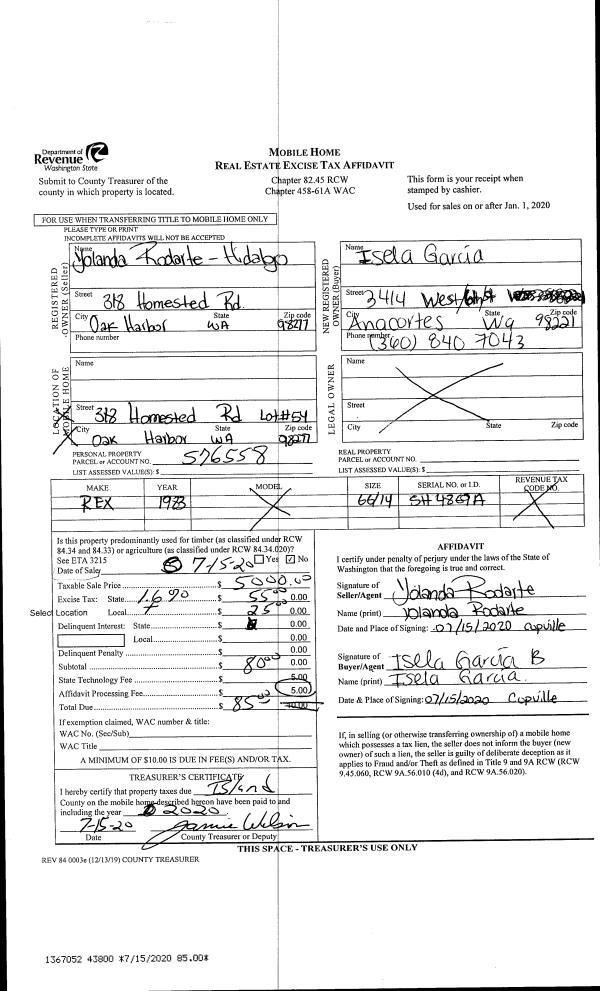 Department of
Revenue
Washington State
MOBILE HOME
REAL ESTATE EXCISE TAX AFFIDAVIT
Submit to County Treasurer of the
county in which property is located.
Chapter 82.45 RCW
Chapter 458-61A WAC
This form is your receipt when
stamped by cashier.
Used for sales on or after Jan. 1, 2020
FOR USE WHEN TRANSFERRING TITLE TO MOBILE HOME ONLY
PLEASE TYPE OR PRINT
INCOMPLETE AFFIDAVITS WILL NOT BE ACCEPTED
REGISTERED OWNER (Seller)
Name Yolanda Rodarte - Hidalgo
Street 318 Homested Rd.
City State Zip code
Oak Harbor WA 98277
Phone number
NEW REGISTERED OWNER (Buyer)
Name Isela Garcia
Street 3414 West
City State Zip code
Anacortes Wa 98221
Phone number (360) 840 7043
LOCATION OF MOBILE HOME
Name
Street 318 Homested Rd Lot#54
City State Zip code
Oak Harbor WA 98277
LEGAL OWNER
Name
Street
City State Zip code
PERSONAL PROPERTY
PARCEL or ACCOUNT NO. 576558
LIST ASSESSED VALUE(S): $
REAL PROPERTY
PARCEL or ACCOUNT NO.
LIST ASSESSED VALUE(S): $
MAKE YEAR MODEL SIZE SERIAL NO. or I.D. REVENUE TAX CODE NO.
REX 1983 66/14 SH4867A
Is this property predominantly used for timber (as classified under RCW
84.34 and 84.33) or agriculture (as classified under RCW 84.34.020)?
See ETA 3215 Yes ✓ No
Date of Sale 7-15-20
Taxable Sale Price $ 5000.00
Excise Tax: State 1.6% $ 55.00 0.00
Select Location Local $ 25.00 0.00
Delinquent Interest: State $ 0.00
Local $ 0.00
Delinquent Penalty $ 0.00
Subtotal $ 80.00 0.00
State Technology Fee $ 5.00
Affidavit Processing Fee $ 5.00
Total Due $ 85.00 10.00
If exemption claimed, WAC number & title:
WAC No. (Sec/Sub)
WAC Title
A MINIMUM OF $10.00 IS DUE IN FEE(S) AND/OR TAX.
TREASURER'S CERTIFICATE
I hereby certify that property taxes due Island
County on the mobile home described hereon have been paid to and
including the year 2020
7-15-20 Jamie Wilson
Date County Treasurer or Deputy
AFFIDAVIT
I certify under penalty of perjury under the laws of the State of
Washington that the foregoing is true and correct.
Signature of
Seller/Agent Yolanda Rodarte
Name (print) Yolanda Rodarte
Date and Place of Signing: 07/15/2020 cupville
Signature of
Buyer/Agent Isela Garcia B
Name (print) Isela Garcia
Date & Place of Signing: 07/15/2020 Cupville
If, in selling (or otherwise transferring ownership of) a mobile home
which possesses a tax lien, the seller does not inform the buyer (new
owner) of such a lien, the seller is guilty of deliberate deception as it
applies to Fraud and/or Theft as defined in Title 9 and 9A RCW (RCW
9.45.060, RCW 9A.56.010 (4d), and RCW 9A.56.020).
THIS SPACE - TREASURER'S USE ONLY
REV 84 0003e (12/13/19) COUNTY TREASURER
1367052 43800 *7/15/2020 85.00*